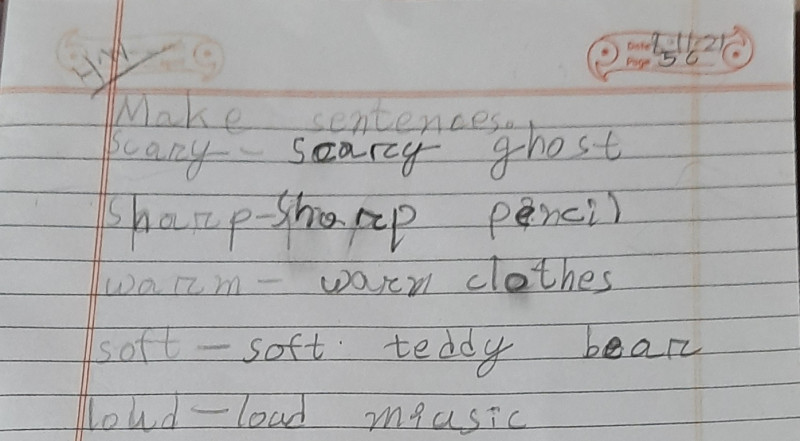 H/W
Date 9.11.21
Page 56
Make sentences.
scary - scarcy ghost
Sharp - Sharp pencil
warm - warm clothes
soft - soft teddy bear
loud - load music